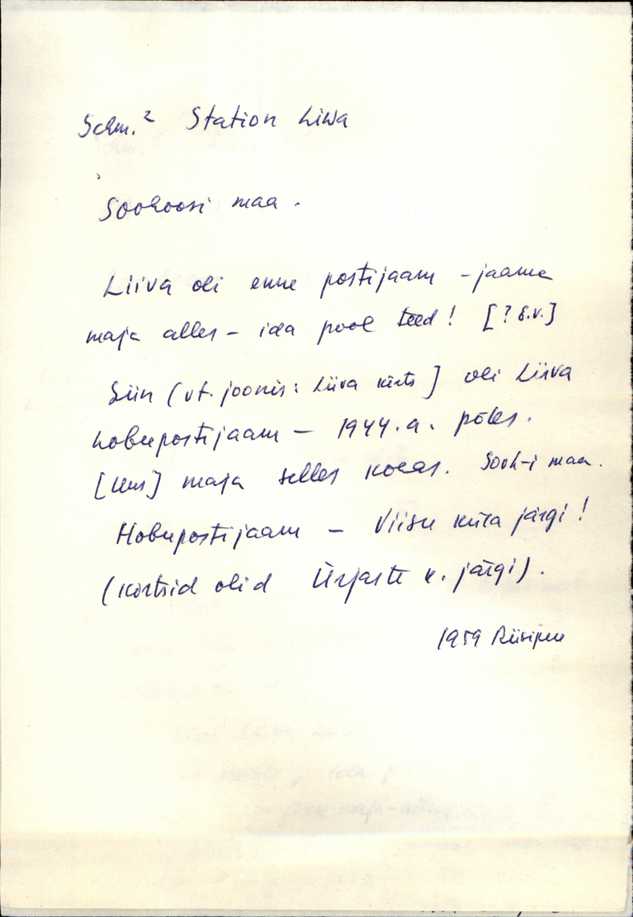 Schm.² Station Liwa
Sookoosi maa.
Liiva oli enne postijaam – jaama
maja alles – ida pool teed! [? E.V.]
Siin (vt. joonis: Liiva kõrts] oli Liiva
hobupostijaam – 1944.a. põles.
[Uus] maja selles kohas. Sook-i maa.
Hobupostijaam – Viisu küla järgi!
(kõrtsid olid Ürjaste k. järgi).
1959 Riisipere